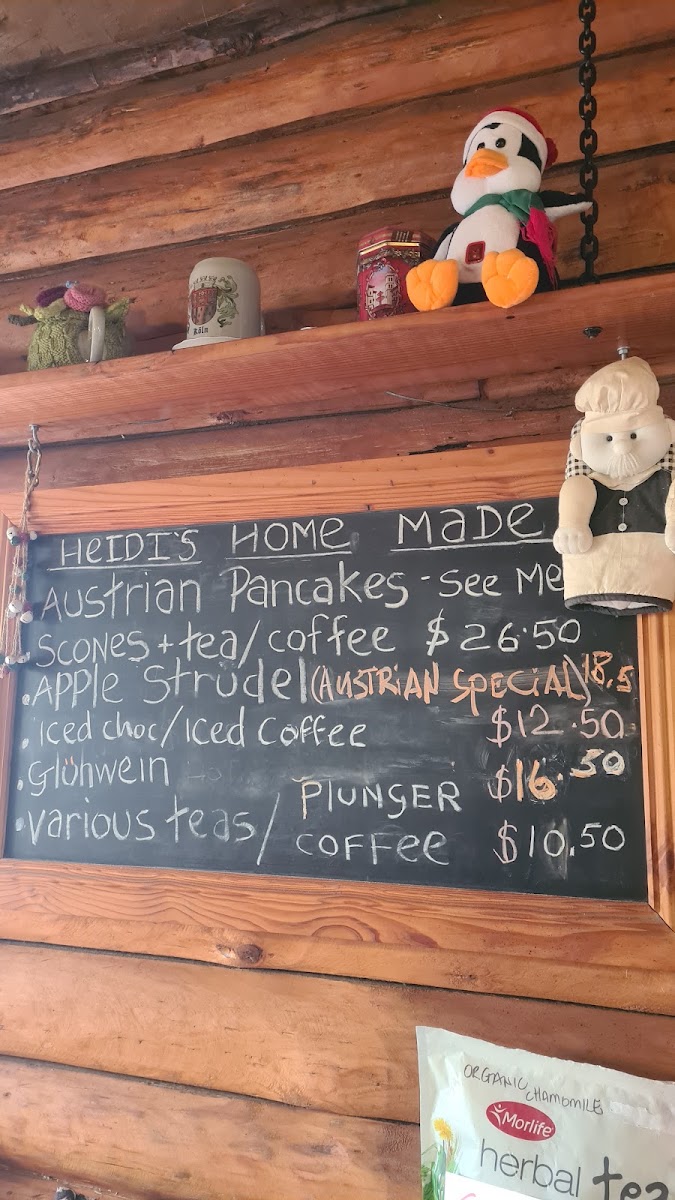 Köln
HEIDI'S HOME MADE
Austrian Pancakes - See Me
SCONES + tea/coffee $26.50
. APPle Strudel (AUSTRIAN SPECIAL) 18.5
. iced choc/Iced Coffee $12.50
. Glühwein $16.50
. various teas/ PlUNGER COFFee $10.50
ORGANIC CHAMOMILE
Morlife
herbal tea